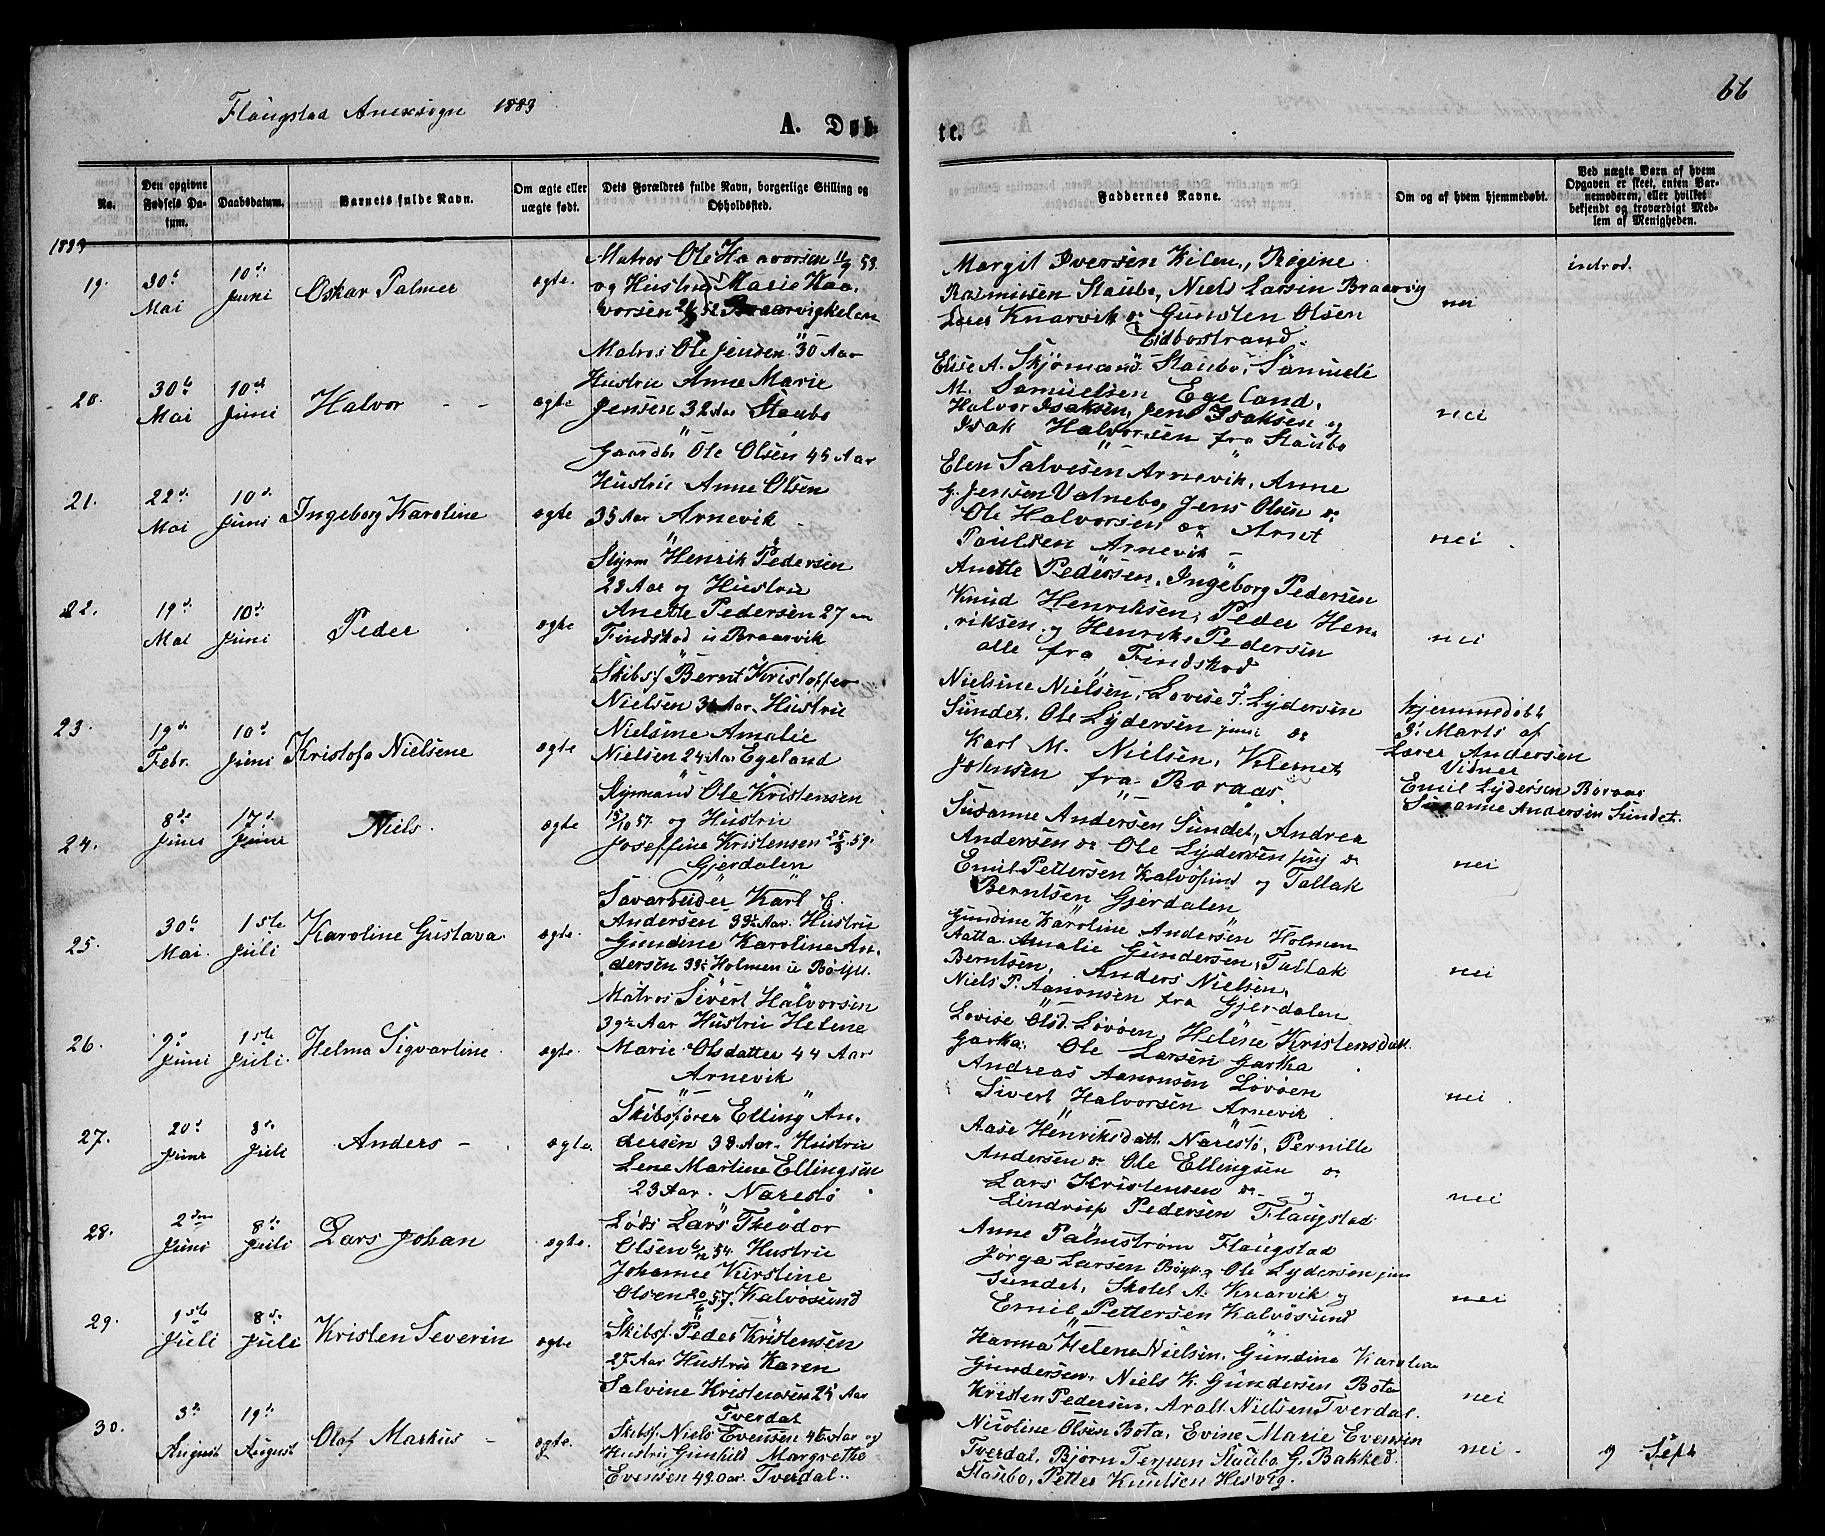 Flaugstad Anexsogn 1883
A. Døb-
te.
66
No.
Den opgivne Fødsels Datum.
Daabsdatum.
Barnets fulde Navn.
Om ægte eller uægte født.
Dets Forældres fulde Navn, borgerlige Stilling og Opholdssted.
Faddernes Navne.
Om og af hvem hjemmedøbt.
Ved uægte Børn af hvem Opgaven er skeet, enten Barnemoderen, eller hvilket bekjendt og troværdigt Medlem af Menigheden.
1883
19. 30te Mai
10de Juni
Oskar Palmer
ægte.
Matros Ole Haavorsen 11/9 53.
og Hustru Marie Haa-
vorsen Braarvigkelen
Margit Iversen Kilen, Regine
Rasmussen Staubø, Niels Larsen Braarvig
Knarvik og Gunsten Olsen
Eidbostrand.
nei
introd.
20. 30te Mai
10de Juni
Halvor - -
ægte
Matros Ole Jensen 30 Aar
Hustru Anne Marie
Jensen 32 Aar Staubø
Else A. Skjømand Staubø, Samuele
M. Samuelsen Egeland,
Halvor Isaksen, Jens Isaksen og
Isak Halvorsen fra Staubø
nei
21. 22de Mai
10de Juni
Ingeborg Karoline
ægte
Gaardbr Ole Olsen 45 Aar
Hustru Anne Olsen
35 Aar Arnevik -
Elen Salvesen Arnevik, Anne
G. Jensen Vatnebo, Jens Olsen og
Ole Halvorsen og Arnt
Paulsen Arnevik -
nei
22. 19de Mai
10de Juni
Peder
ægte
Styrm Henrik Pedersen
28 Aar og Hustru
Anette Pedersen 27 aar
Findskod u Braarvik
Anette Pedersen, Ingeborg Pedersen
Knud Henriksen, Peder Hen-
riksen og Henrik Pedersen
alle fra Findskod
nei
23. 19de Febr.
10de Juni
Kristofa Nielsene
ægte
Skibsf Bernt Kristoffer
Nielsen Aar. Hustru
Nielsine Amalie
Nielsen 24 Aar Egeland
Nielsine Nielsen, Lovise J. Lydersen
Sundet, Ole Lydersen jun. og
Karl M. Nielsen, Klemet
Johnsen fra Boraas.
hjemmedøbt
Marts af
Lærer Andersen
Vidner
Emil Lydersen Boraas
Susanne Andersen Sundet.
24. 8de Juni
17de Juni
Niels.
ægte
Styrmand Ole Kristensen
15/10 57. og Hustru
Joseffine Kristensen 59.
Gjerdalen
Susanne Andersen Sundet, Andrea
Andersen og Ole Lydersen og
Emil Pettersen Kalvøsund og Tallak
Berntsen Gjerdalen
nei
25. 30te Mai.
1ste Juli
Karoline Gustava
ægte.
Savarbeider Karl E.
Andersen 39½ Aar. Hustru
Gundine Karoline An-
dersen Holmen u Bøly..
Gundine Karoline Andersen Holmen
Aatta Amalie Gundersen, Tallak
Berntsen, Anders Nielsen,
Niels P. Aanonsen fra Gjerdalen
nei
26. 9de Juni
1ste Juli.
Helma Sigvartine
ægte.
Matros Sivert Halvorsen
39½ Aar Hustru Helene
Marie Olsdatter 44 Aar
Arnevik
Lovise Olsd. Løvøen, Helene Kristensdatt.
Garta, Ole Larsen Gartha
Andreas Aanonsen Løvøen
Sivert Halvorsen Arnevik.
nei
27. 20de Juni
8de Juli
Anders -
ægte.
Skibsfører Elling An-
dersen 38 Aar. Hustru
Lene Martine Ellingsen
23 Aar. Narestø
Aase Henriksdatt. Narestø, Pernille
Andersen og Ole Ellingsen og
Lars Kristensen og
Lindrup Pedersen Flaugstad.
nei
28. 2den Juni
8de Juli
Lars Johan
ægte.
Lods Lars Theodor
Olsen 6/12 54 Hustru
Johanne Kirstine
Olsen 20/6 57. Kalvøsund
Anne Palmstrøm Flaugstad
Jørga Larsen Ole Lydersen jun
Sundet, A. Knarvik og
Emil Pettersen Kalvøsund
nei
29. 1ste Juli
8de Juli
Kristen Severin
ægte
Skibsf. Peder Kristensen
27 Aar Hustru Karen
Salvine Kristensen 25 Aar
Tverdal
Hanna Helene Nielsen, Gundine Karoline
Gundersen, Niels K. Gundersen Bota
Kristen Pedersen, Aralt Nielsen Tverdal.
nei
30. 3de August
19de August
Olaf Markus -
ægte.
Skibsf. Niels Evensen 46 Aar og
Hustru Gunhild Margrethe
Evensen 42 aar. Tverdal..
Nicoline Olsen Bota, Evine Marie Evensen
Tverdal, Bjørn Terpen Staubø G. Bakked.
Staubø, Petter Knutsen Hesvig.
nei -
9 Sept